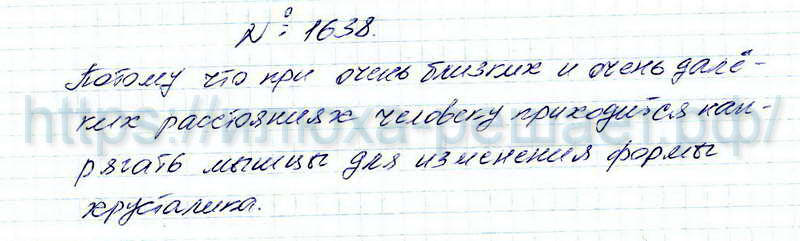 № 1638.
Потому что при очень близких и очень далё-
ких расстояниях человеку приходится нап-
рягать мышцы для изменения формы
хрусталика.